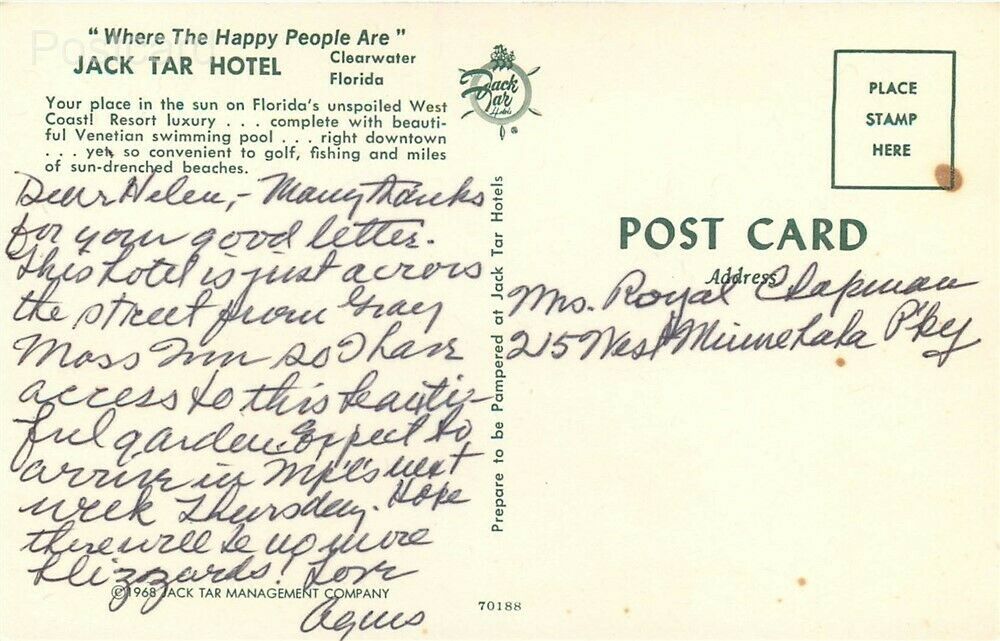 "Where The Happy People Are"
JACK TAR HOTEL
Clearwater
Florida
Your place in the sun on Florida's unspoiled West
Coast! Resort luxury . . . complete with beauti-
ful Venetian swimming pool . . . right downtown
. . . yet so convenient to golf, fishing and miles
of sun-drenched beaches.
Dear Helen,- Many thanks
for your good letter.
This hotel is just across
the street from Gray
Moss Inn so I have
access to this beauti-
ful garden. Expect to
arrive in Mpl's next
week Thursday. Hope
there will be no more
blizzards! Love
Agnes
©1968 JACK TAR MANAGEMENT COMPANY
Prepare to be Pampered at Jack Tar Hotels
Jack
Tar
70188
PLACE
STAMP
HERE
POST CARD
Address
Mrs. Royal Chapman
215 West Minnehaha P'ky
Postcard